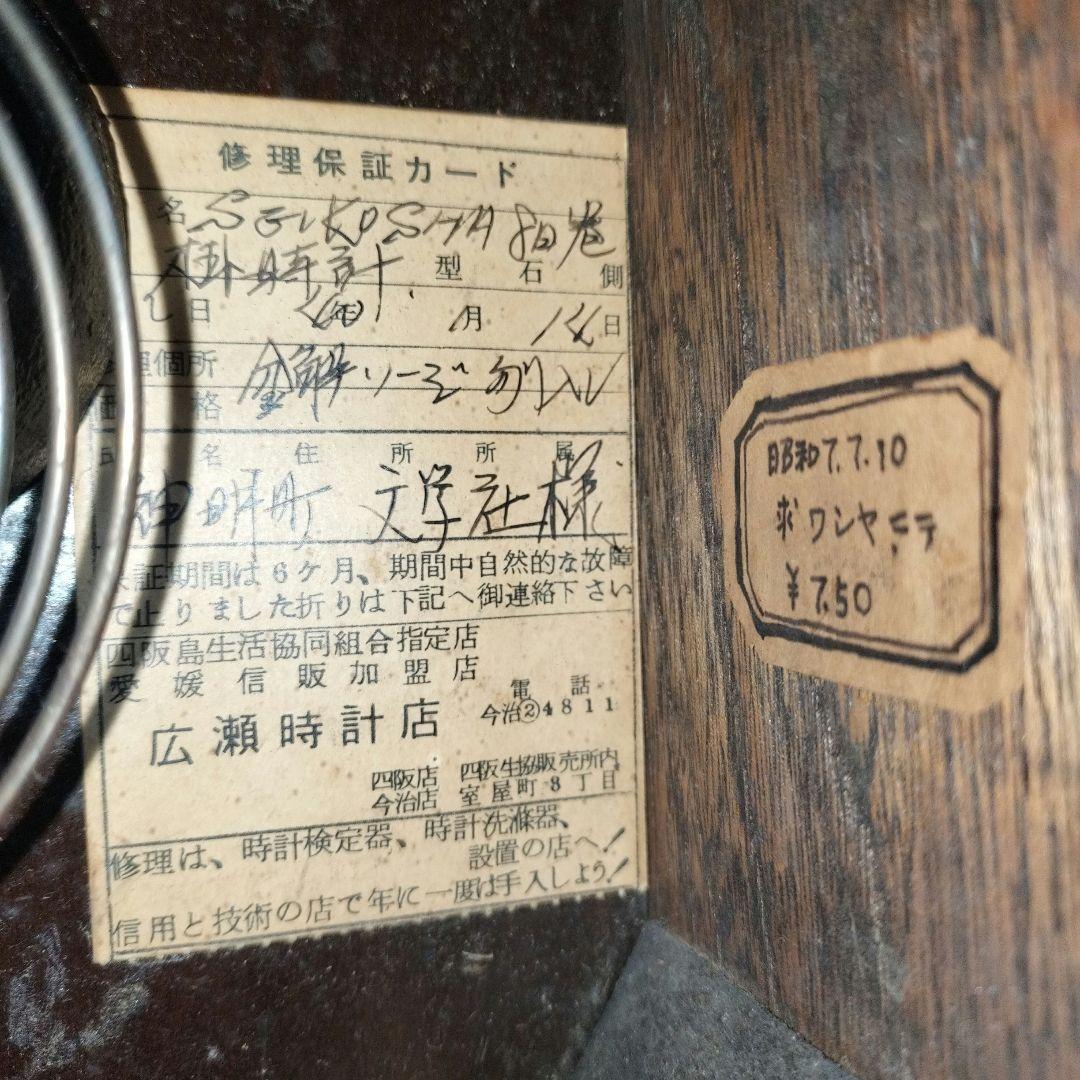 修理保証カード
名 SEIKOSHA 8日巻
掛時計 型 石 側
し日 年 月 日
理個所 分解ソージ 油入レ
価格
氏名住所所属
神明町 文学社様
保証期間は6ケ月、期間中自然的な故障
で止りました折りは下記へ御連絡下さい
四阪島生活協同組合指定店
愛媛信販加盟店
電話
広瀬時計店 今治②4811
四阪店 四阪生協販売所内
今治店 室屋町3丁目
修理は、時計検定器、時計洗滌器、
設置の店へ!
信用と技術の店で年に一度は手入しよう!
昭和7.7.10
求ワシヤニテ
¥7.50